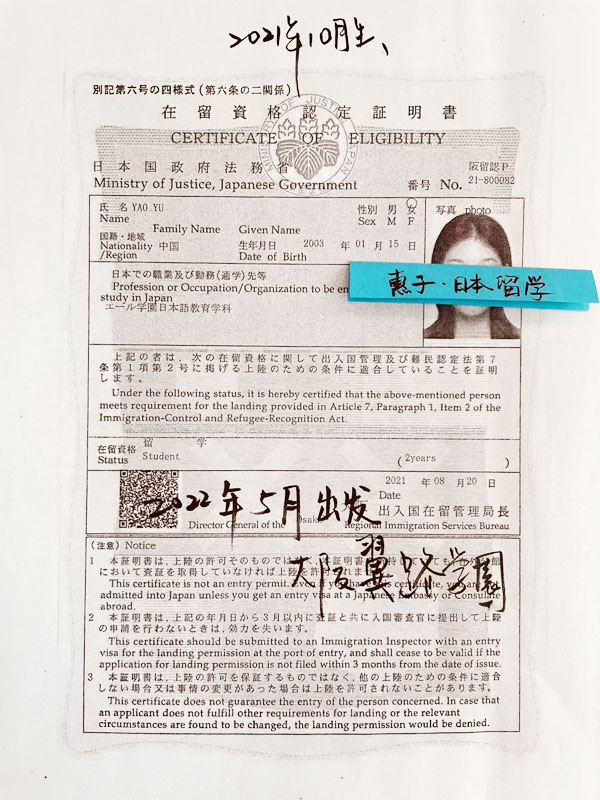 2021年10月生、
別記第六号の四様式(第六条の二関係)
在留資格認定証明書
CERTIFICATE OF ELIGIBILITY
MINISTRY OF JUSTICE JAPAN
日本国政府法務省
阪留認P
Ministry of Justice, Japanese Government
番号 No. 21-800082
氏名 YAO YU
性別 男 女
写真 photo
Name
Sex M F
Family Name Given Name
国籍・地域
Nationality 中国
/Region
生年月日 2003 年 01 月 15 日
Date of Birth
日本での職業及び勤務(通学)先等
Profession or Occupation/Organization to be em
惠子・日本留学
study in Japan
エール学園日本語教育学科
上記の者は、次の在留資格に関して出入国管理及び難民認定法第7
条第1項第2号に掲げる上陸のための条件に適合していることを証明
します。
Under the following status, it is hereby certified that the above-mentioned person
meets requirement for the landing provided in Article 7, Paragraph 1, Item 2 of the
Immigration-Control and Refugee-Recognition Act.
在留資格 留 学
Status Student
( 2years )
2021 年 08 月 20 日
Date
2022年5月出发
出入国在留管理局長
Director General of the Osaka Regional Immigration Services Bureau
大阪翼路学園
(注意) Notice
1 本証明書は、上陸の許可そのものではなく、本証明書
において査証を取得していなければ上陸を許可
This certificate is not an entry permit. Even if you have this certificate, you
admitted into Japan unless you get an entry visa at a Japanese Embassy or Consulate
abroad.
2 本証明書は、上記の年月日から3月以内に査証と共に入国審査官に提出して上陸
の申請を行わないときは、効力を失います。
This certificate should be submitted to an Immigration Inspector with an entry
visa for the landing permission at the port of entry, and shall cease to be valid if the
application for landing permission is not filed within 3 months from the date of issue.
3 本証明書は、上陸の許可を保証するものではなく、他の上陸のための条件に適合
しない場合又は事情の変更があった場合は上陸を許可されないことがあります。
This certificate does not guarantee the entry of the person concerned. In case that
an applicant does not fulfill other requirements for landing or the relevant
circumstances are found to be changed, the landing permission would be denied.